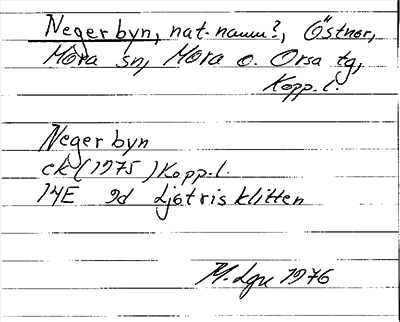 Negerbyn, nat-namn?, Östnor,
Mora sn, Mora o. Orsa tg,
Kopp. l.
Negerbyn
ek (1975) Kopp. l.
14E 9d Ljotrisklitten
M. Lgn 1976